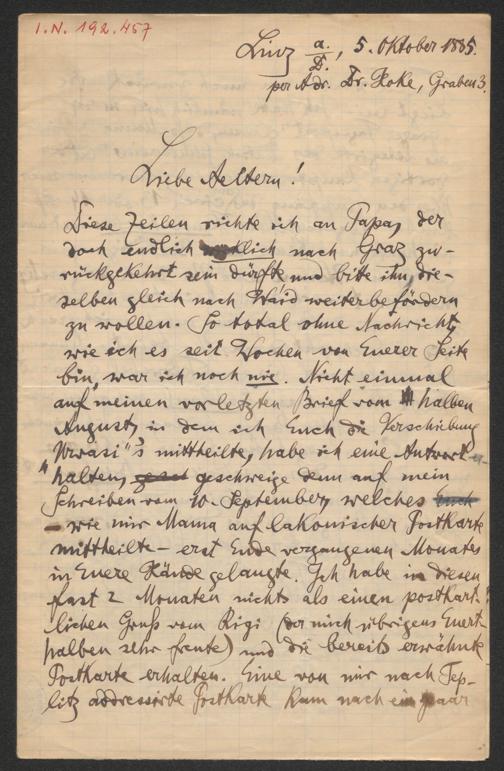 I.N. 192.457
Linz a./D., 5. Oktober 1885.
per Adr. Dr. Koke, Graben 3.
Liebe Aeltern!
Diese Zeilen richte ich an Papa, der
doch endlich wirklich nach Graz zu-
rückgekehrt sein dürfte und bitte ihn, die-
selben gleich nach Waid weiterbefördern
zu wollen. So total ohne Nachricht,
wie ich es seit Wochen von Euerer Seite
bin, war ich noch nie. Nicht einmal
auf meinen vorletzten Brief vom halben
August, in dem ich Euch die Verschiebung
"Urvasi"'s mittheilte, habe ich eine Antwort er-
halten, geschweige denn auf mein
Schreiben vom 10. September, welches
– wie mir Mama auf lakonischer Postkarte
mittheilte – erst Ende vergangenen Monates
in Euere Hände gelangte. Ich habe in diesen
fast 2 Monaten nicht als einen postkart-
lichen Gruß vom Rigi (der mich übrigens Euert-
halben sehr freute) und die bereits erwähnte
Postkarte erhalten. Eine von mir nach Tep-
litz addressirte Postkarte kam nach ein paar